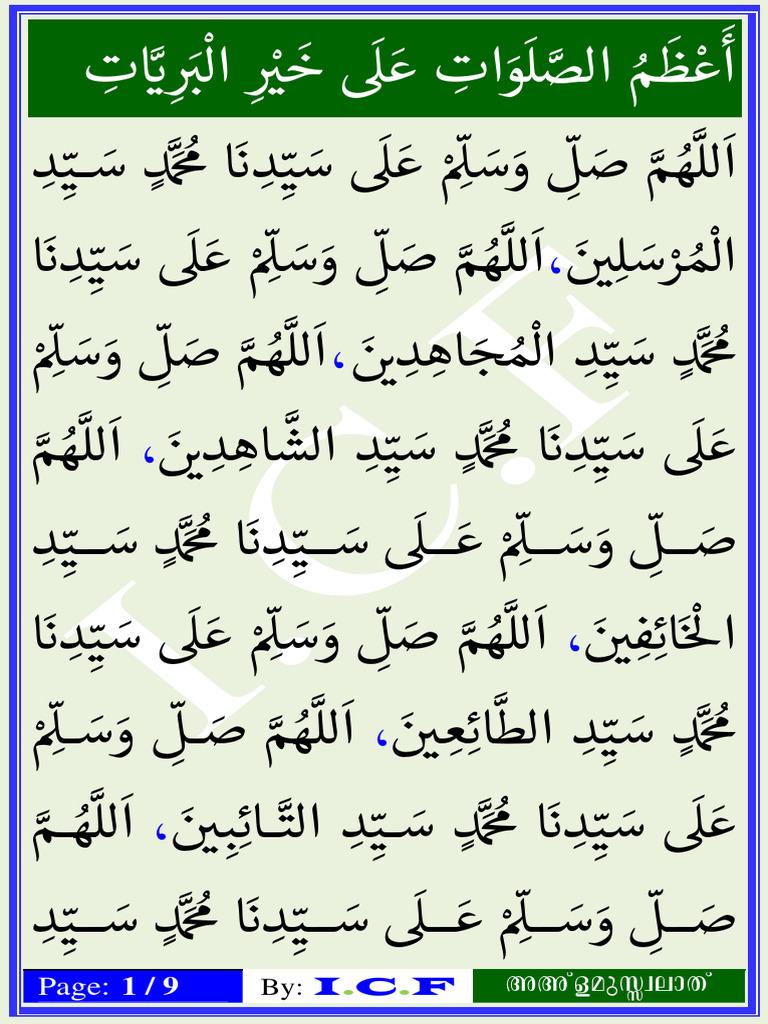 أَعْظَمُ الصَّلَوَاتِ عَلَى خَيْرِ الْبَرِيَّاتِ
اَللَّهُمَّ صَلِّ وَسَلِّمْ عَلَى سَيِّدِنَا مُحَمَّدٍ سَيِّدِ
الْمُرْسَلِينَ، اَللَّهُمَّ صَلِّ وَسَلِّمْ عَلَى سَيِّدِنَا
مُحَمَّدٍ سَيِّدِ الْمُجَاهِدِينَ، اَللَّهُمَّ صَلِّ وَسَلِّمْ
عَلَى سَيِّدِنَا مُحَمَّدٍ سَيِّدِ الشَّاهِدِينَ، اَللَّهُمَّ
صَلِّ وَسَلِّمْ عَلَى سَيِّدِنَا مُحَمَّدٍ سَيِّدِ
الْخَائِفِينَ، اَللَّهُمَّ صَلِّ وَسَلِّمْ عَلَى سَيِّدِنَا
مُحَمَّدٍ سَيِّدِ الطَّائِعِينَ، اَللَّهُمَّ صَلِّ وَسَلِّمْ
عَلَى سَيِّدِنَا مُحَمَّدٍ سَيِّدِ التَّائِبِينَ، اَللَّهُمَّ
صَلِّ وَسَلِّمْ عَلَى سَيِّدِنَا مُحَمَّدٍ سَيِّدِ
I.C.F
Page: 1 / 9 By: I.C.F അഅ്ളമുസ്സ്വലാത്